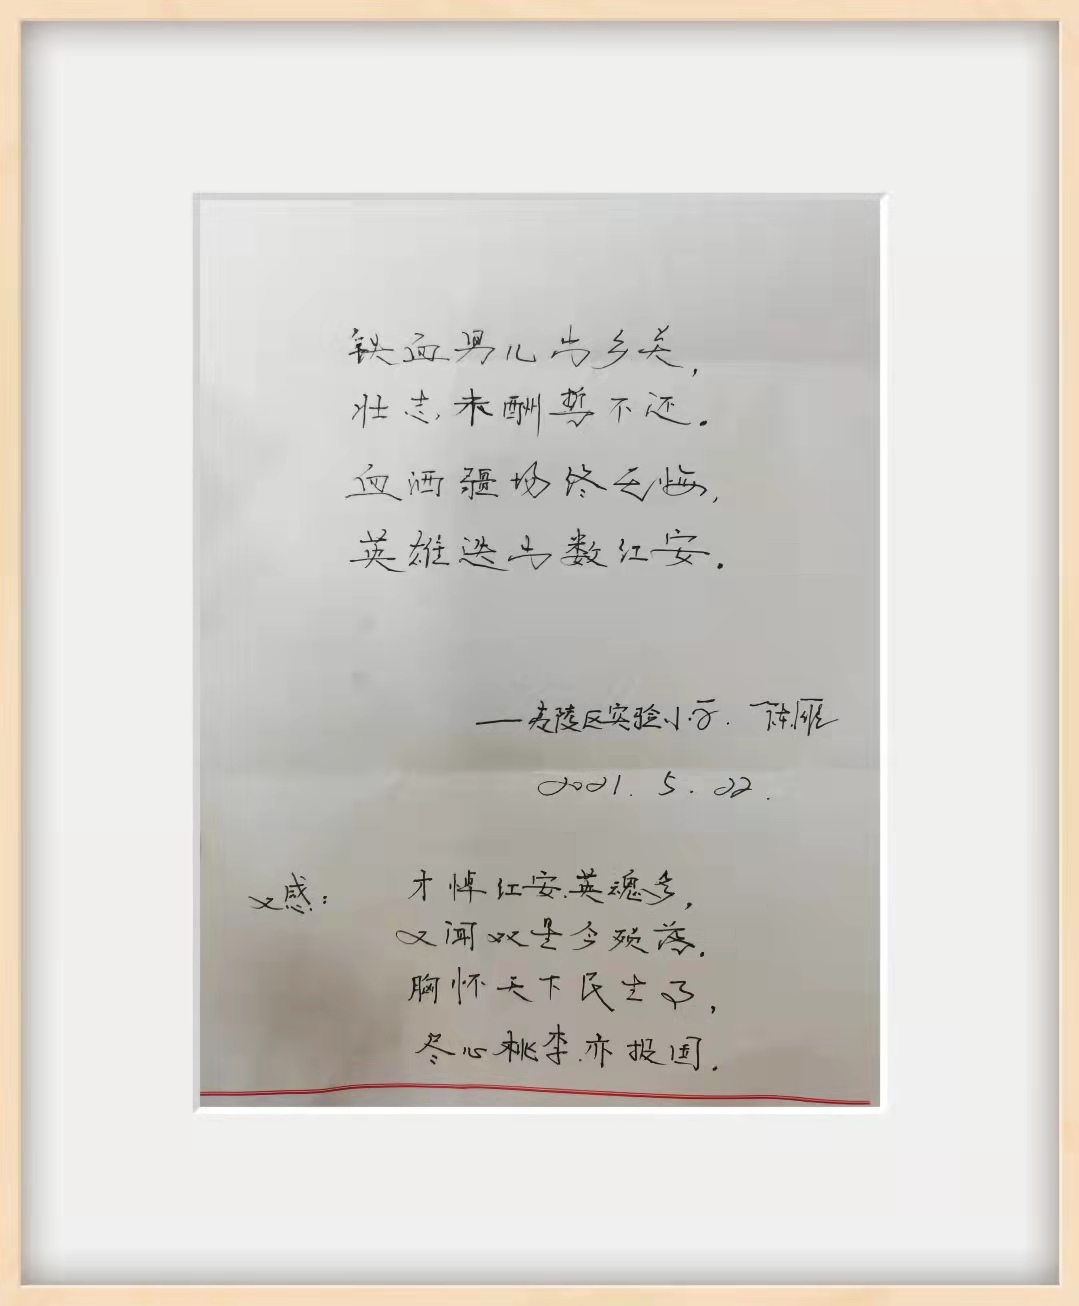 铁血男儿出乡关，
壮志未酬誓不还。
血洒疆场终无悔，
英雄迭出数红安。
——夷陵区实验小学. 陈雁
2021.5.22.
又感：才悼红安英魂多，
又闻双星今殒落。
胸怀天下民生了，
尽心桃李亦报国。